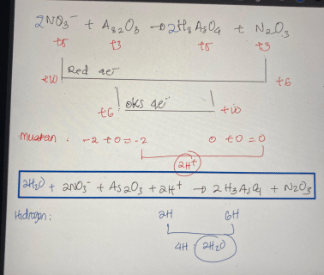 2NO3⁻ + As2O3 → 2H3AsO4 + N2O3
+5 +3 +5 +3
+10 Red 4e⁻ +6
+6 oks 4e⁻ +10
muatan . -2 + 0 = -2 0 + 0 = 0
2H⁺
2H2O + 2NO3⁻ + As2O3 + 2H⁺ → 2H3AsO4 + N2O3
Hidrogen : 2H 6H
4H 2H2O